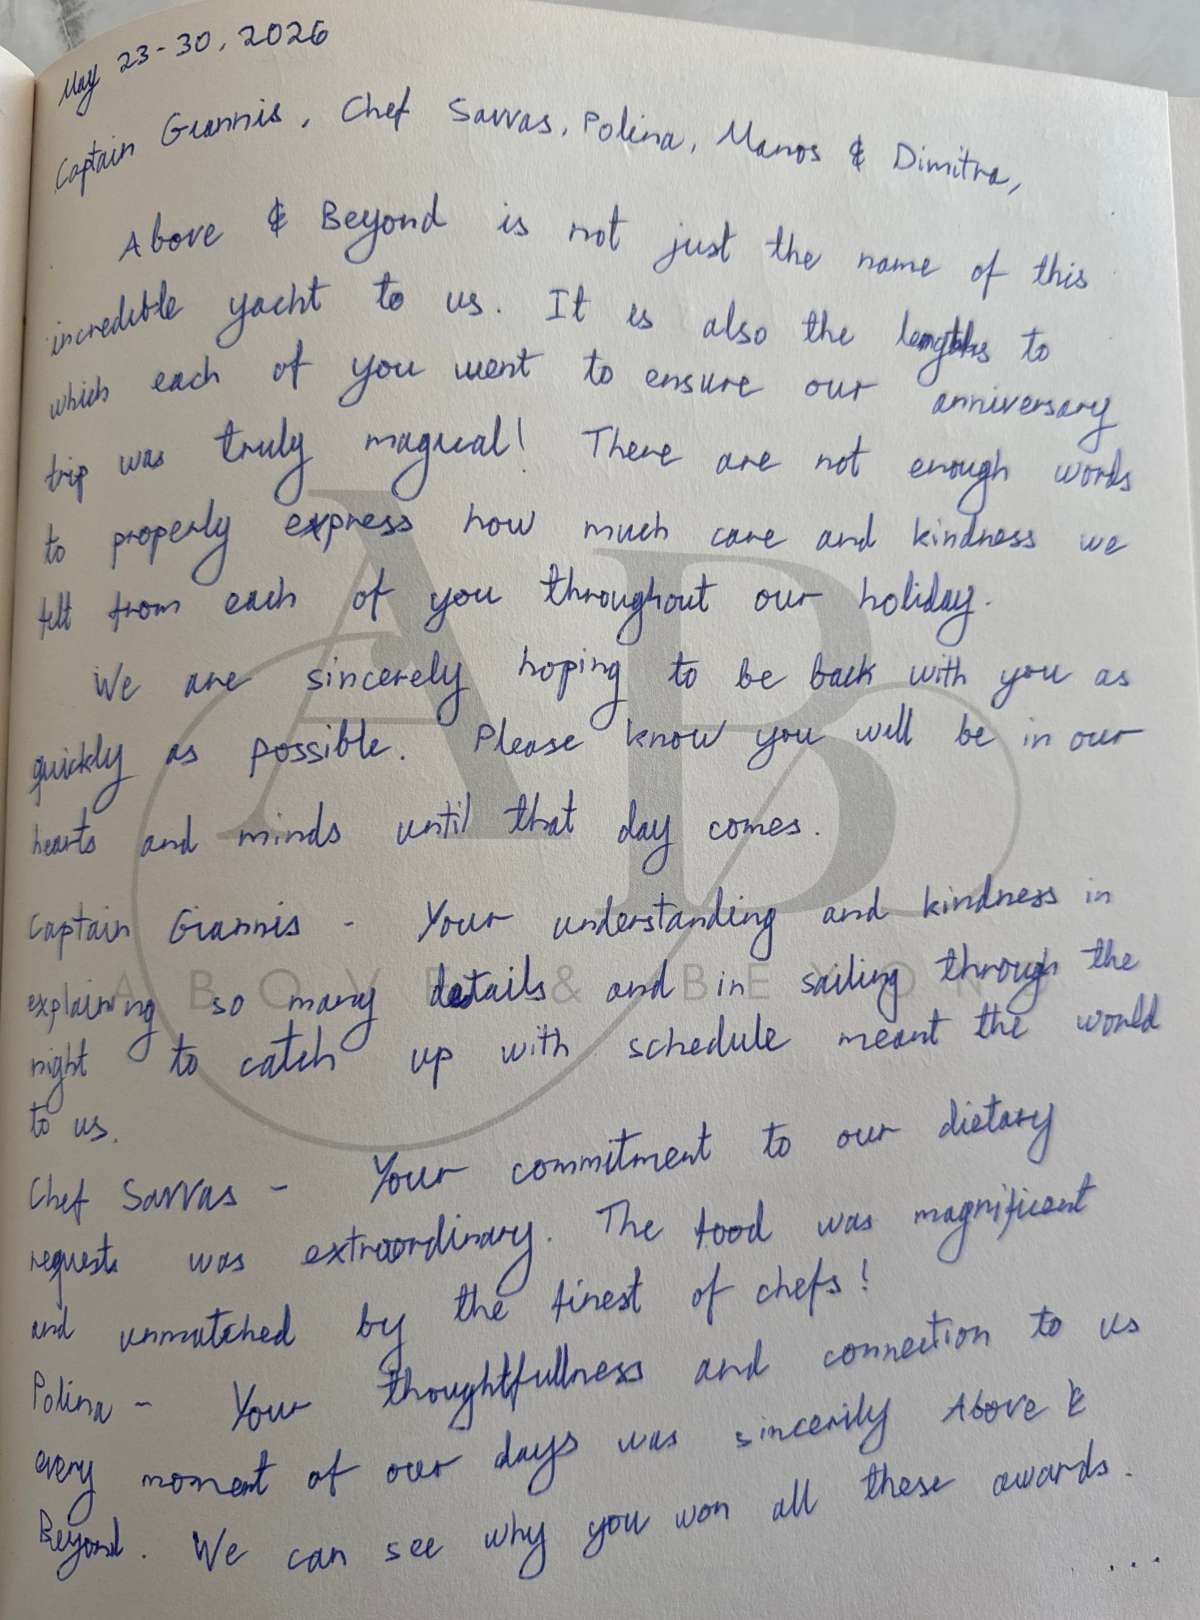 May 23-30, 2026
Captain Giannis, Chef Savvas, Polina, Manos & Dimitra,
Above & Beyond is not just the name of this
incredible yacht to us. It is also the lengths to
which each of you went to ensure our anniversary
trip was truly magical! There are not enough words
to properly express how much care and kindness we
felt from each of you throughout our holiday.
We are sincerely hoping to be back with you as
quickly as possible. Please know you will be in our
hearts and minds until that day comes.
Captain Giannis - Your understanding and kindness in
explaining so many details and in sailing through the
night to catch up with schedule meant the world
to us.
Chef Savvas - Your commitment to our dietary
requests was extraordinary. The food was magnificent
and unmatched by the finest of chefs!
Polina - Your thoughtfullness and connection to us
every moment of our days was sincerily Above &
Beyond. We can see why you won all these awards.
...
AB
ABOVE & BEYOND